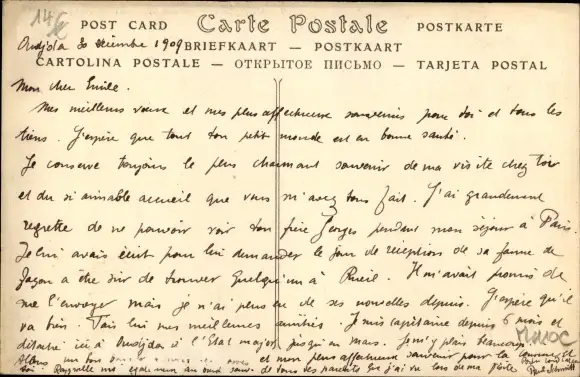 14 €
POST CARD Carte Postale POSTKARTE
Oudjda 30 décembre 1909 BRIEFKAART — POSTKAART
CARTOLINA POSTALE — ОТКРЫТОЕ ПИСЬМО — TARJETA POSTAL
Mon cher Emile.
Mes meilleurs voeux et mes plus affectueux souvenirs pour toi et tous les
tiens. J'espère que tout ton petit monde est en bonne santé.
Je conserve toujours le plus charmant souvenir de ma visite chez toi
et du si aimable accueil que vous m'avez tous fait. J'ai grandement
regretté de ne pouvoir voir ton frère Georges pendant mon séjour à Paris.
Je lui avais écrit pour lui demander le jour de réceptions de sa femme de
façon à être sûr de trouver quelqu'un à Rueil. Il m'avait promis de
me l'envoyer mais je n'ai plus eu de ses nouvelles depuis. J'espère qu'il
va bien. Fais lui mes meilleures amitiés. Je suis capitaine depuis 6 mois et
détaché ici à Oudjda à l'Etat major jusqu'en mars. Je m'y plais beaucoup
Maroc
Allons un bon et mon plus affectueux souvenir pour ta
toi. Rappelle moi également au bon souvenir de tes parents que j'ai vu lors de ma